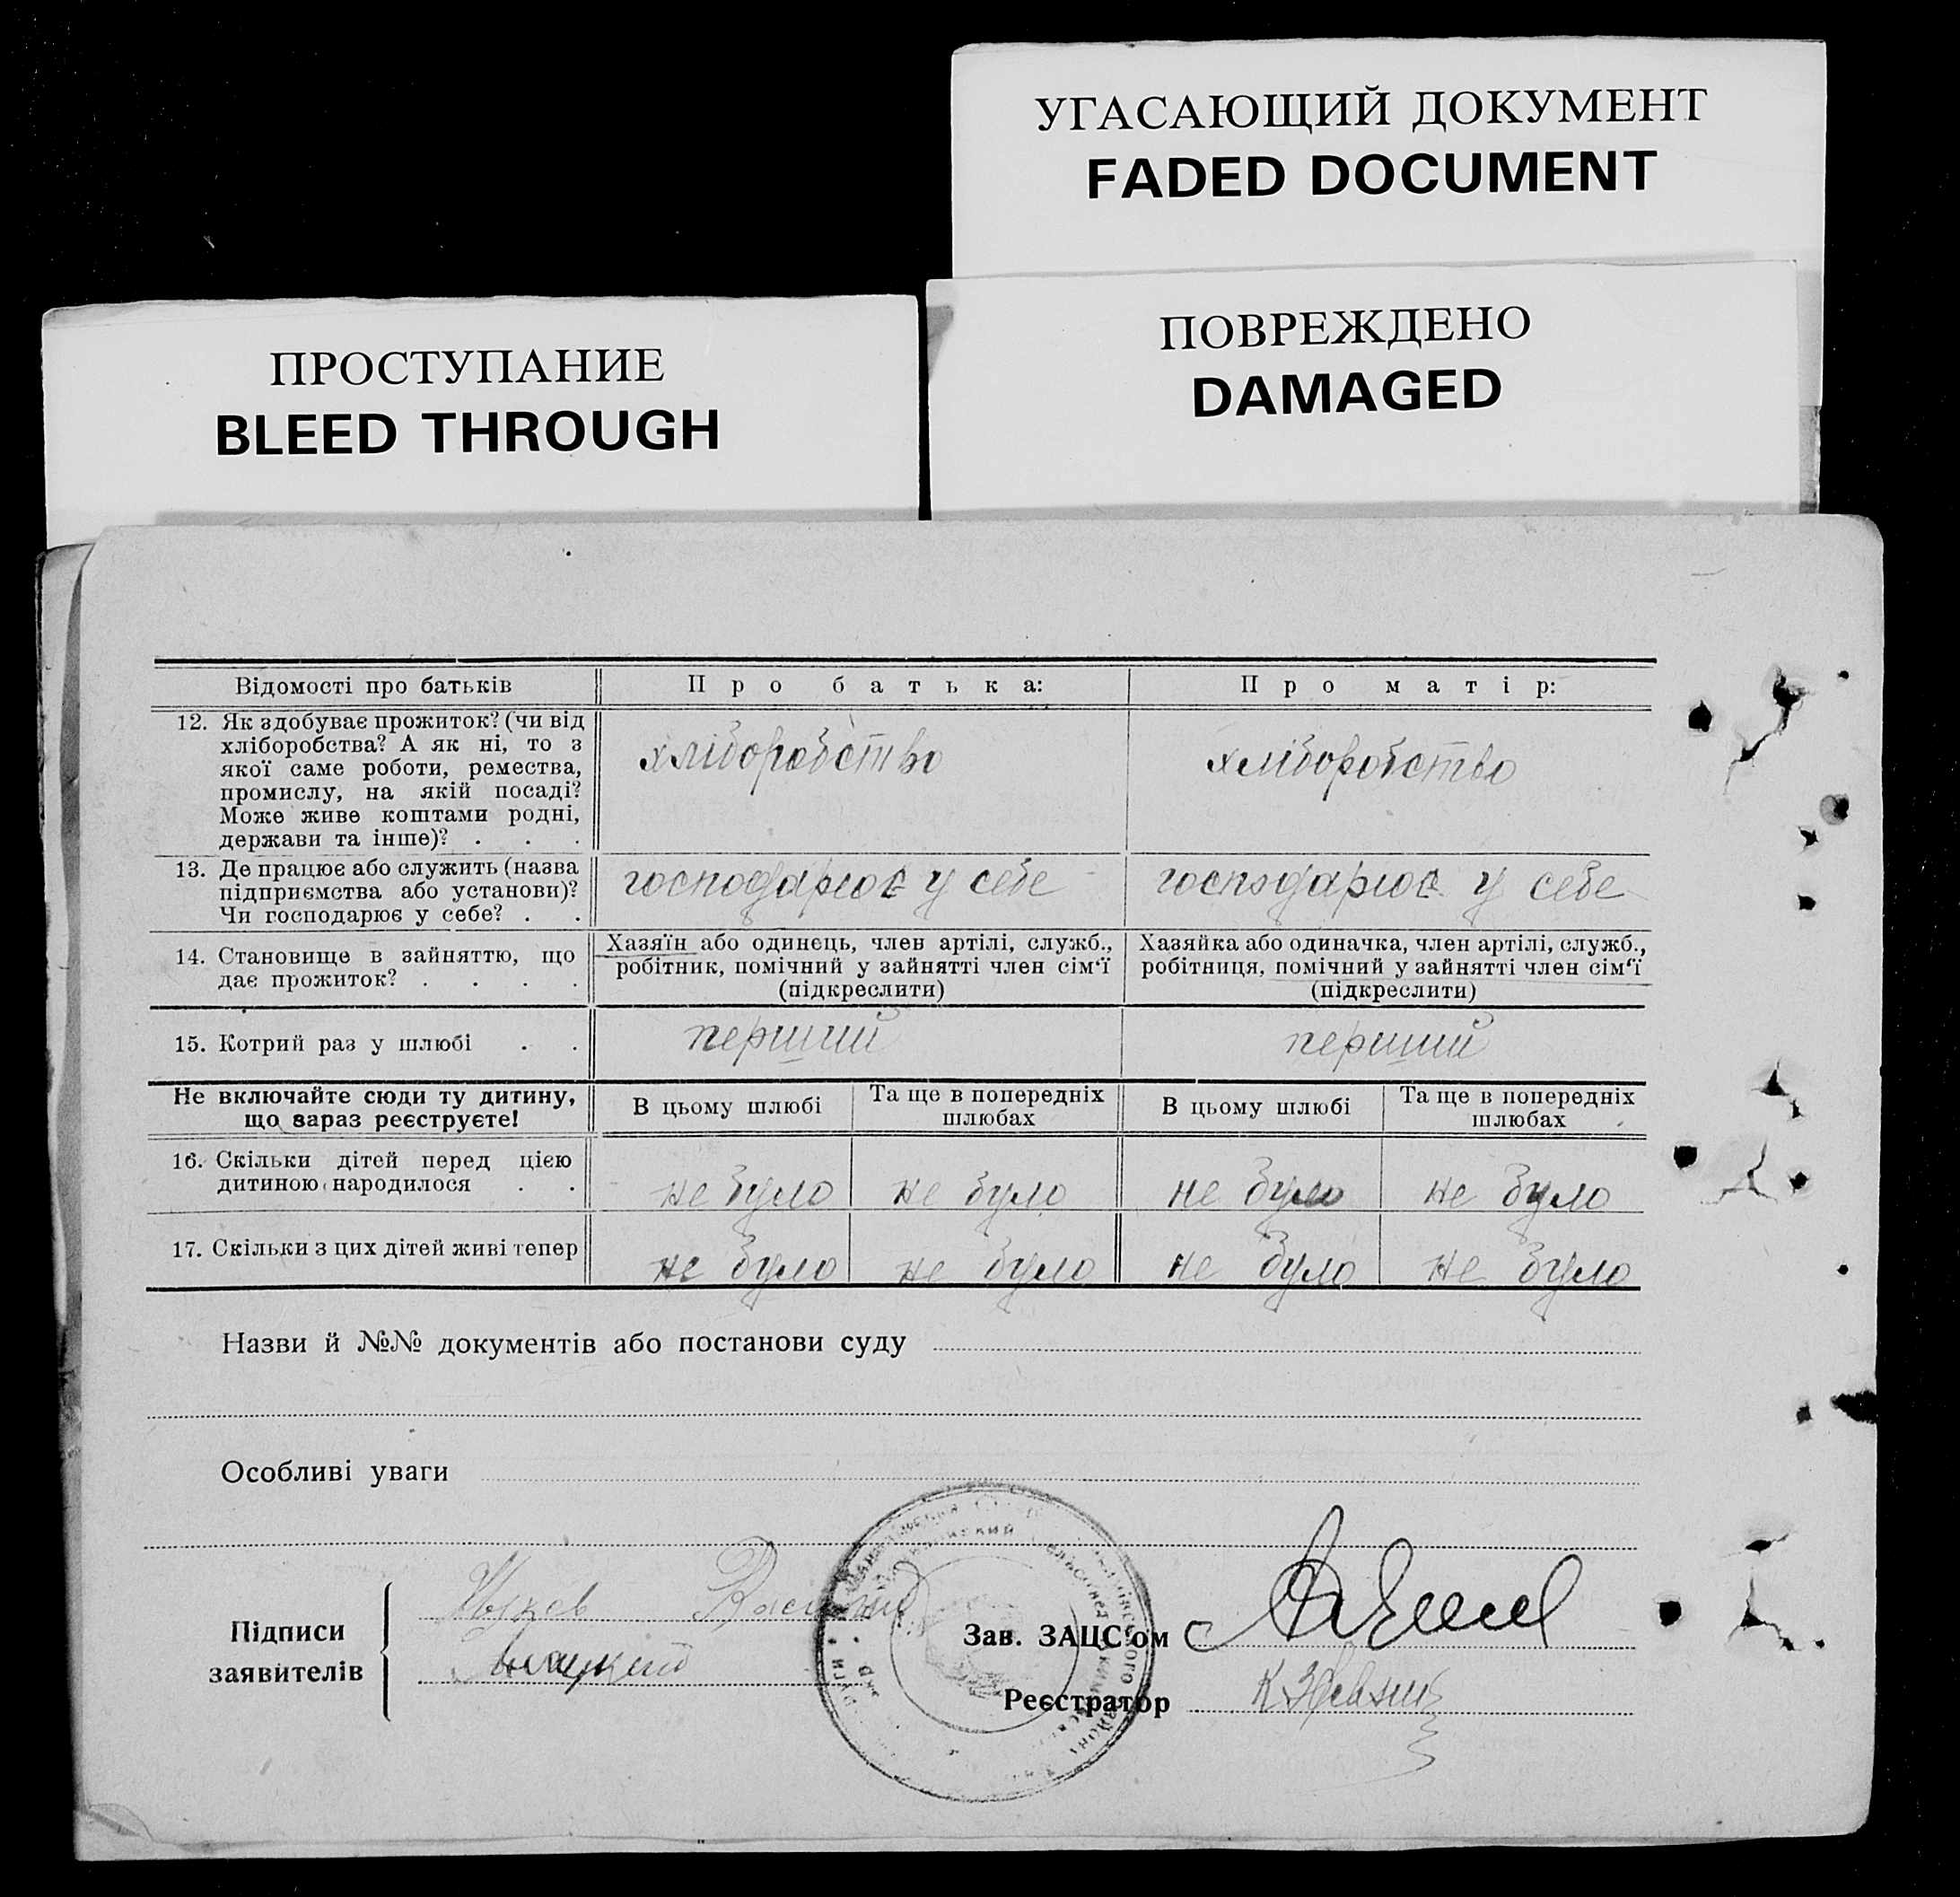 УГАСАЮЩИЙ ДОКУМЕНТ
FADED DOCUMENT
ПОВРЕЖДЕНО
DAMAGED
ПРОСТУПАНИЕ
BLEED THROUGH
Відомості про батьків
Про батька:
Про матір:
12. Як здобуває прожиток? (чи від
хліборобства? А як ні, то з
якої саме роботи, ремества,
промислу, на якій посаді?
Може живе коштами родні,
держави та інше)? . . .
хліборобство
хліборобство
13. Де працює або служить (назва
підприємства або установи)?
Чи господарює у себе? . .
господарює у себе
господарює у себе
14. Становище в зайняттю, що
дає прожиток? . . . .
Хазяїн або одинець, член артілі, служб.,
робітник, помічний у зайнятті член сім‘ї
(підкреслити)
Хазяйка або одиначка, член артілі, служб.,
робітниця, помічний у зайнятті член сім‘ї
(підкреслити)
15. Котрий раз у шлюбі . .
перший
перший
Не включайте сюди ту дитину,
що зараз реєструєте!
В цьому шлюбі
Та ще в попередніх
шлюбах
В цьому шлюбі
Та ще в попередніх
шлюбах
16. Скільки дітей перед цією
дитиною народилося . .
не було
не було
не було
не було
17. Скільки з цих дітей живі тепер
не було
не було
не було
не було
Назви й №№ документів або постанови суду
Особливі уваги
Підписи
заявителів
Зав. ЗАЦС‘ом
Реєстратор